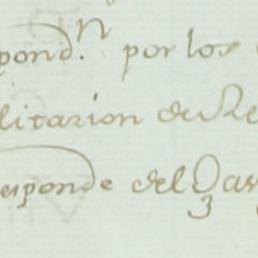 pond.n por los
litazion de Re
esponde del Qas
3